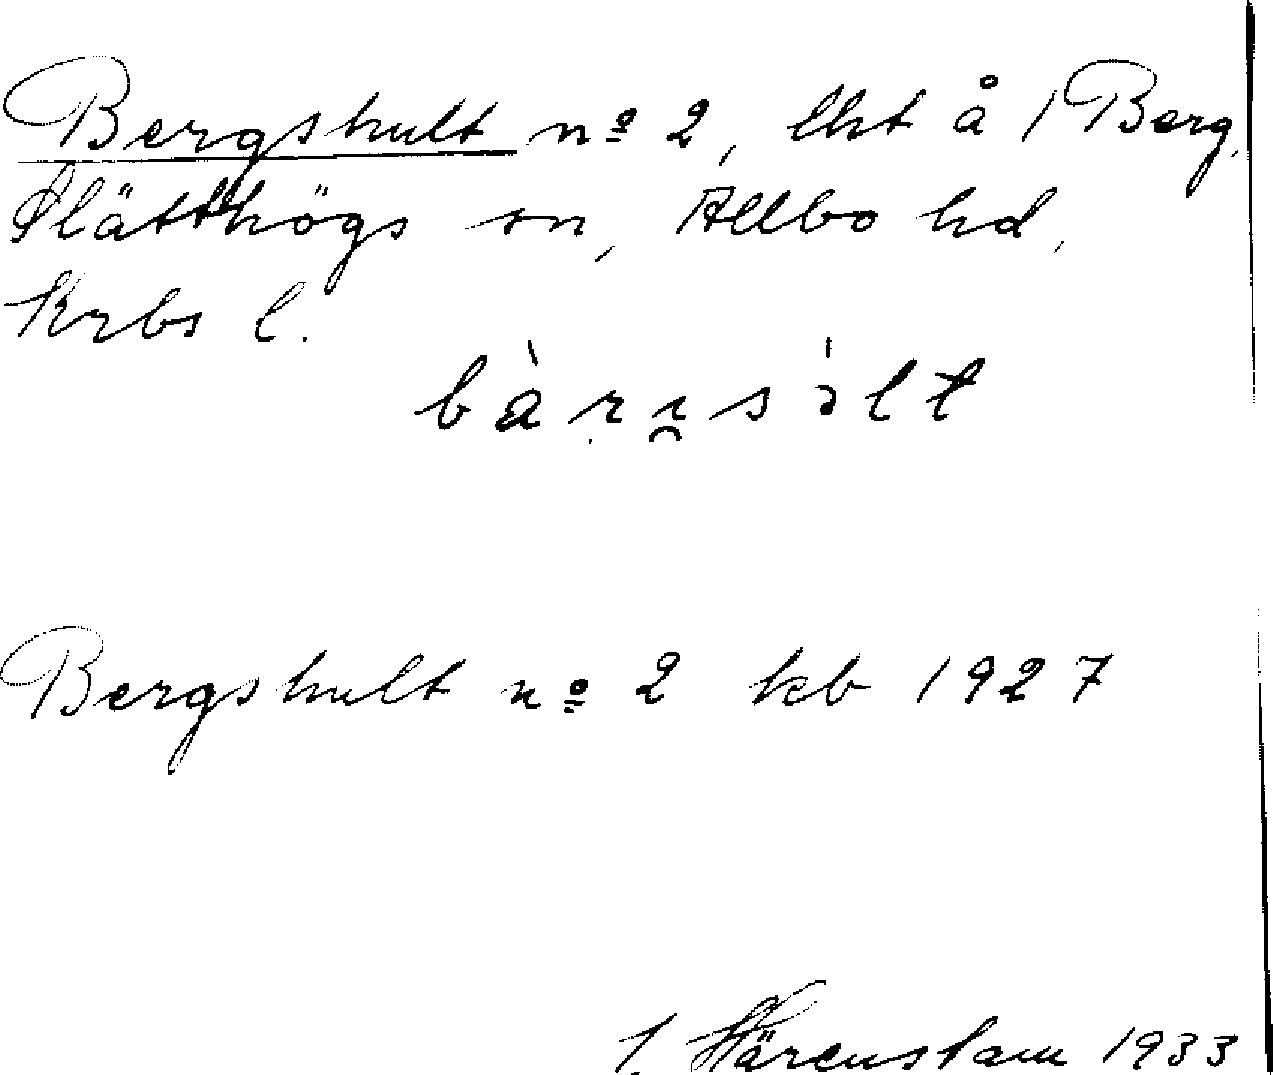 Bergshult nº 2, lht å 1 Berg,
Slätthögs sn, Allbo hd,
Krbs l.
Bergshult nº 2 kb 1927
Härenstam 1933